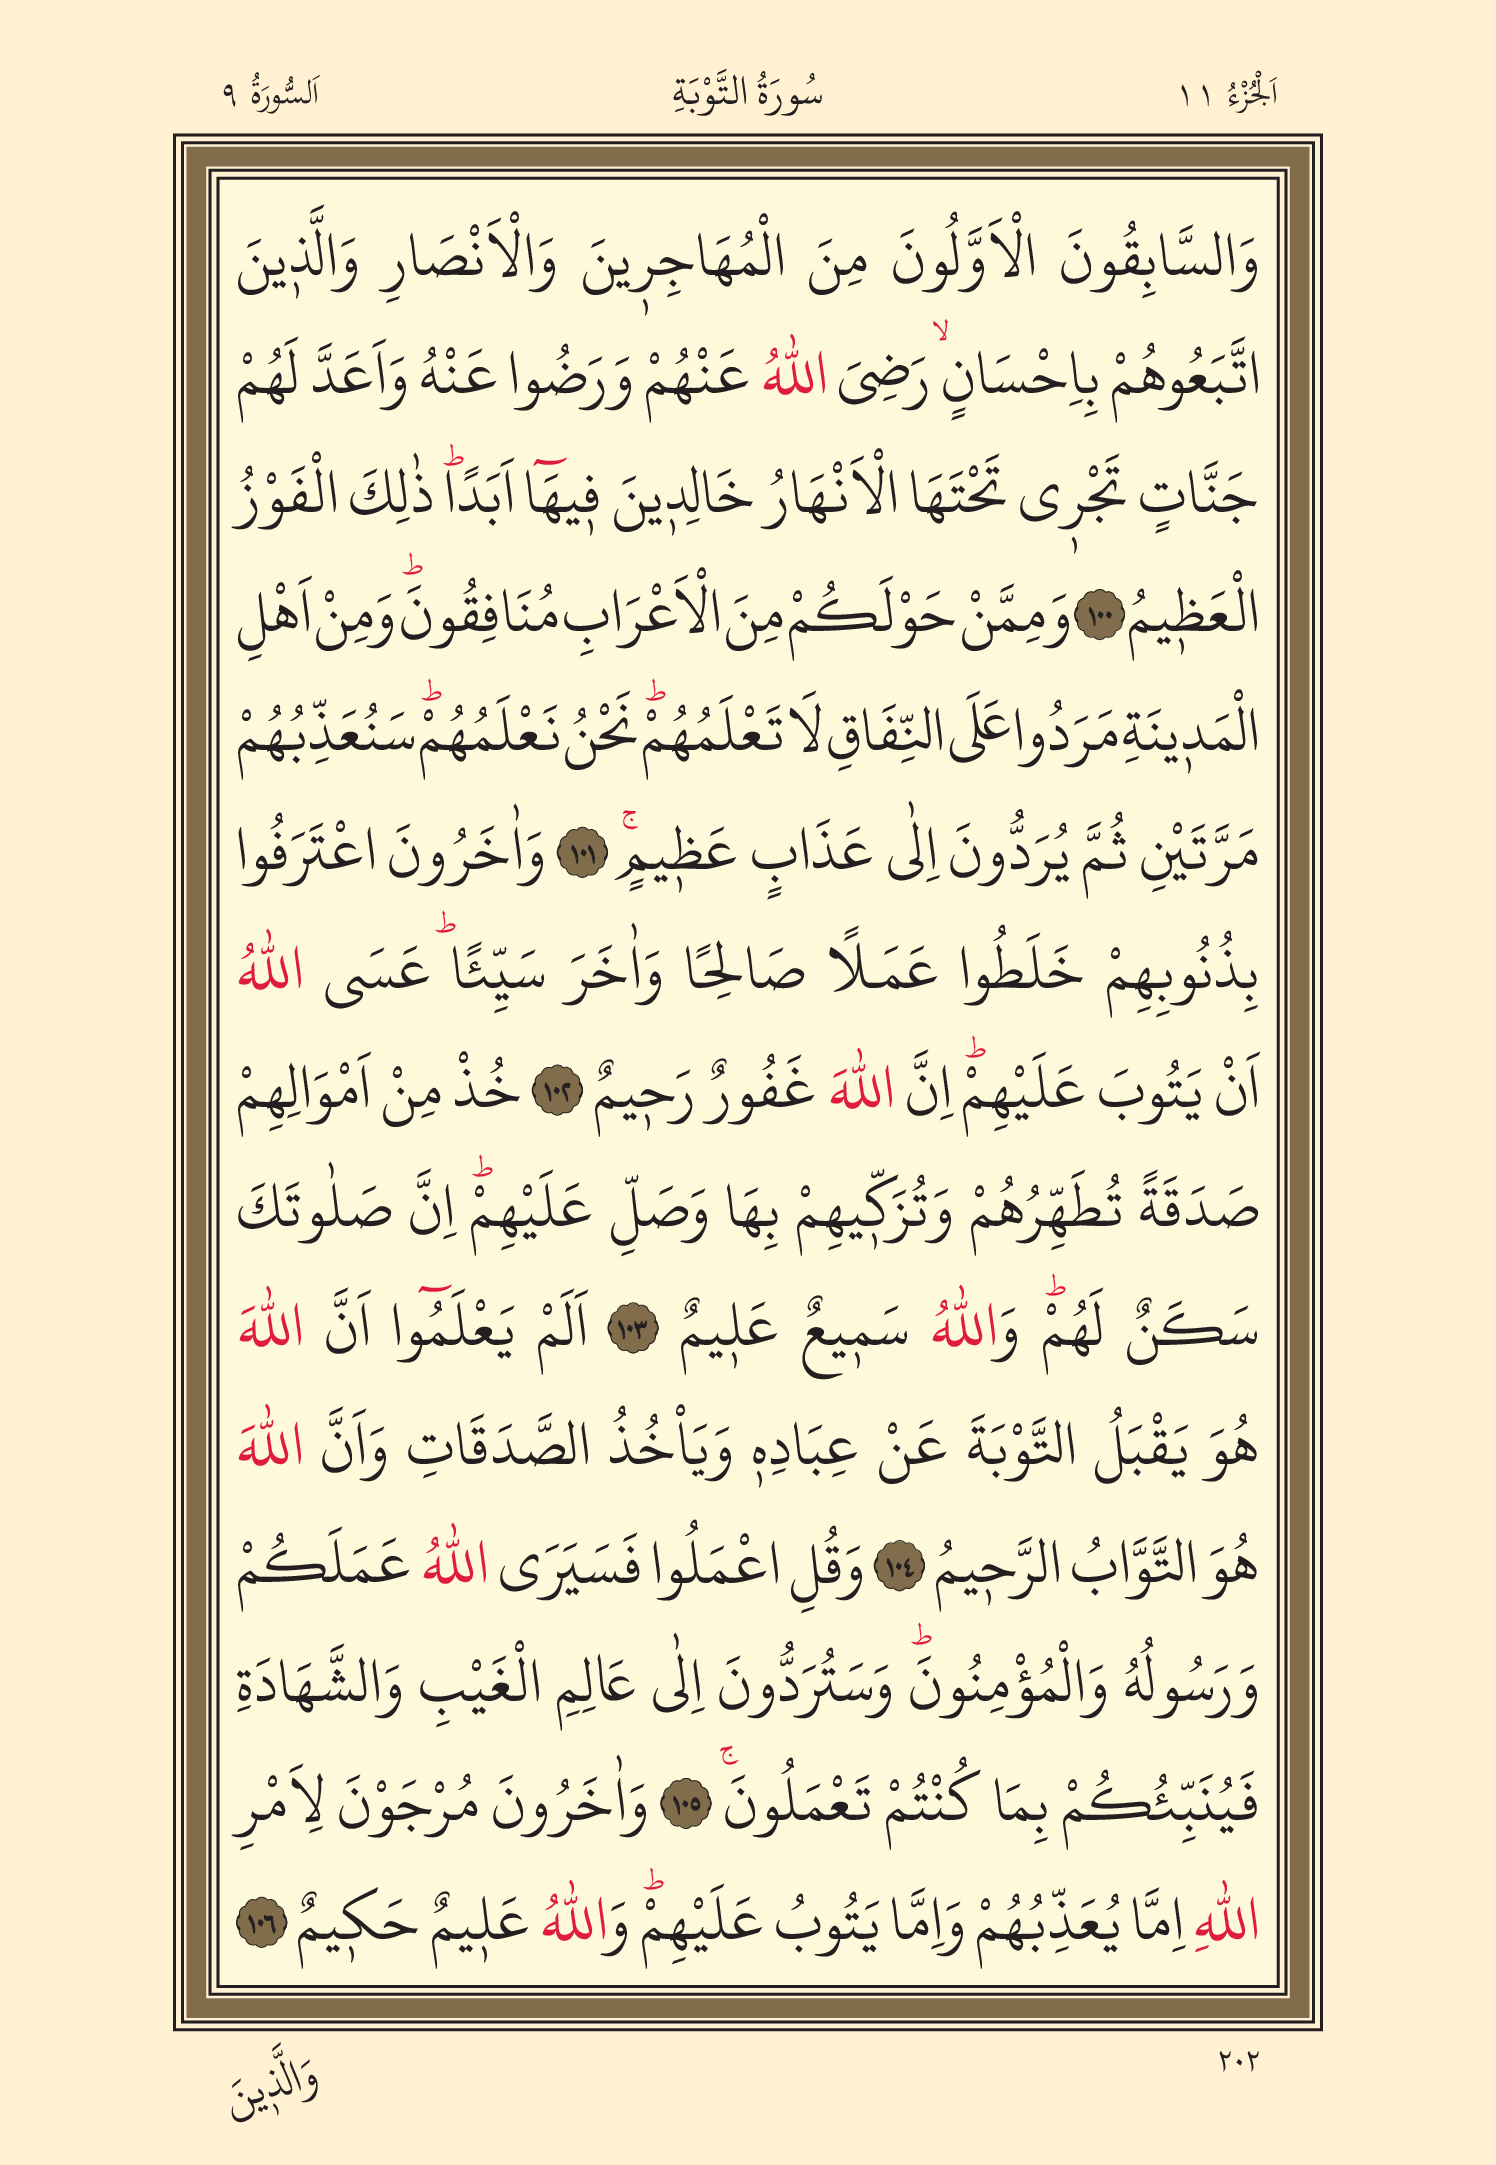 اَلْجُزْءُ ١١ سُورَةُ التَّوْبَةِ اَلسُّورَةُ ٩
وَالسَّابِقُونَ الْاَوَّلُونَ مِنَ الْمُهَاجِرٖينَ وَالْاَنْصَارِ وَالَّذٖينَ
اتَّبَعُوهُمْ بِاِحْسَانٍۙ رَضِىَ اللّٰهُ عَنْهُمْ وَرَضُوا عَنْهُ وَاَعَدَّ لَهُمْ
جَنَّاتٍ تَجْرٖى تَحْتَهَا الْاَنْهَارُ خَالِدٖينَ فٖيهَٓا اَبَدًاؕ ذٰلِكَ الْفَوْزُ
الْعَظٖيمُ ﴿١٠٠﴾ وَمِمَّنْ حَوْلَكُمْ مِنَ الْاَعْرَابِ مُنَافِقُونَؕ وَمِنْ اَهْلِ
الْمَدٖينَةِ مَرَدُوا عَلَى النِّفَاقِ لَا تَعْلَمُهُمْؕ نَحْنُ نَعْلَمُهُمْؕ سَنُعَذِّبُهُمْ
مَرَّتَيْنِ ثُمَّ يُرَدُّونَ اِلٰى عَذَابٍ عَظٖيمٍۚ ﴿١٠١﴾ وَاٰخَرُونَ اعْتَرَفُوا
بِذُنُوبِهِمْ خَلَطُوا عَمَلًا صَالِحًا وَاٰخَرَ سَيِّئًاؕ عَسَى اللّٰهُ
اَنْ يَتُوبَ عَلَيْهِمْؕ اِنَّ اللّٰهَ غَفُورٌ رَحٖيمٌ ﴿١٠٢﴾ خُذْ مِنْ اَمْوَالِهِمْ
صَدَقَةً تُطَهِّرُهُمْ وَتُزَكّٖيهِمْ بِهَا وَصَلِّ عَلَيْهِمْؕ اِنَّ صَلٰوتَكَ
سَكَنٌ لَهُمْؕ وَاللّٰهُ سَمٖيعٌ عَلٖيمٌ ﴿١٠٣﴾ اَلَمْ يَعْلَمُٓوا اَنَّ اللّٰهَ
هُوَ يَقْبَلُ التَّوْبَةَ عَنْ عِبَادِهٖ وَيَاْخُذُ الصَّدَقَاتِ وَاَنَّ اللّٰهَ
هُوَ التَّوَّابُ الرَّحٖيمُ ﴿١٠٤﴾ وَقُلِ اعْمَلُوا فَسَيَرَى اللّٰهُ عَمَلَكُمْ
وَرَسُولُهُ وَالْمُؤْمِنُونَؕ وَسَتُرَدُّونَ اِلٰى عَالِمِ الْغَيْبِ وَالشَّهَادَةِ
فَيُنَبِّئُكُمْ بِمَا كُنْتُمْ تَعْمَلُونَۚ ﴿١٠٥﴾ وَاٰخَرُونَ مُرْجَوْنَ لِاَمْرِ
اللّٰهِ اِمَّا يُعَذِّبُهُمْ وَاِمَّا يَتُوبُ عَلَيْهِمْؕ وَاللّٰهُ عَلٖيمٌ حَكٖيمٌ ﴿١٠٦﴾
٢٠٢ وَالَّذٖينَ